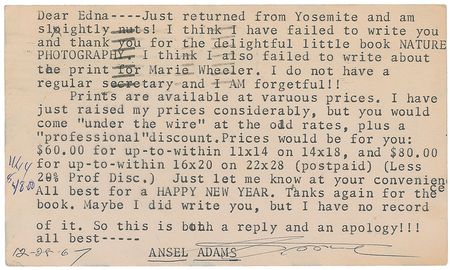 Dear Edna----Just returned from Yosemite and am
slightly nuts! I think I have failed to write you
and thank you for the delightful little book NATURE
PHOTOGRAPHY. I think I also failed to write about
the print for Marie Wheeler. I do not have a
regular secretary and I AM forgetful!!
Prints are available at varuous prices. I have
just raised my prices considerably, but you would
come "under the wire" at the old rates, plus a
"professional"discount.Prices would be for you:
$60.00 for up-to-within 11x14 on 14x18, and $80.00
for up-to-within 16x20 on 22x28 (postpaid) (Less
20% Prof Disc.) Just let me know at your convenience
All best for a HAPPY NEW YEAR. Tanks again for the
book. Maybe I did write you, but I have no record
of it. So this is both a reply and an apology!!!
all best-----
ANSEL ADAMS
12-28-67